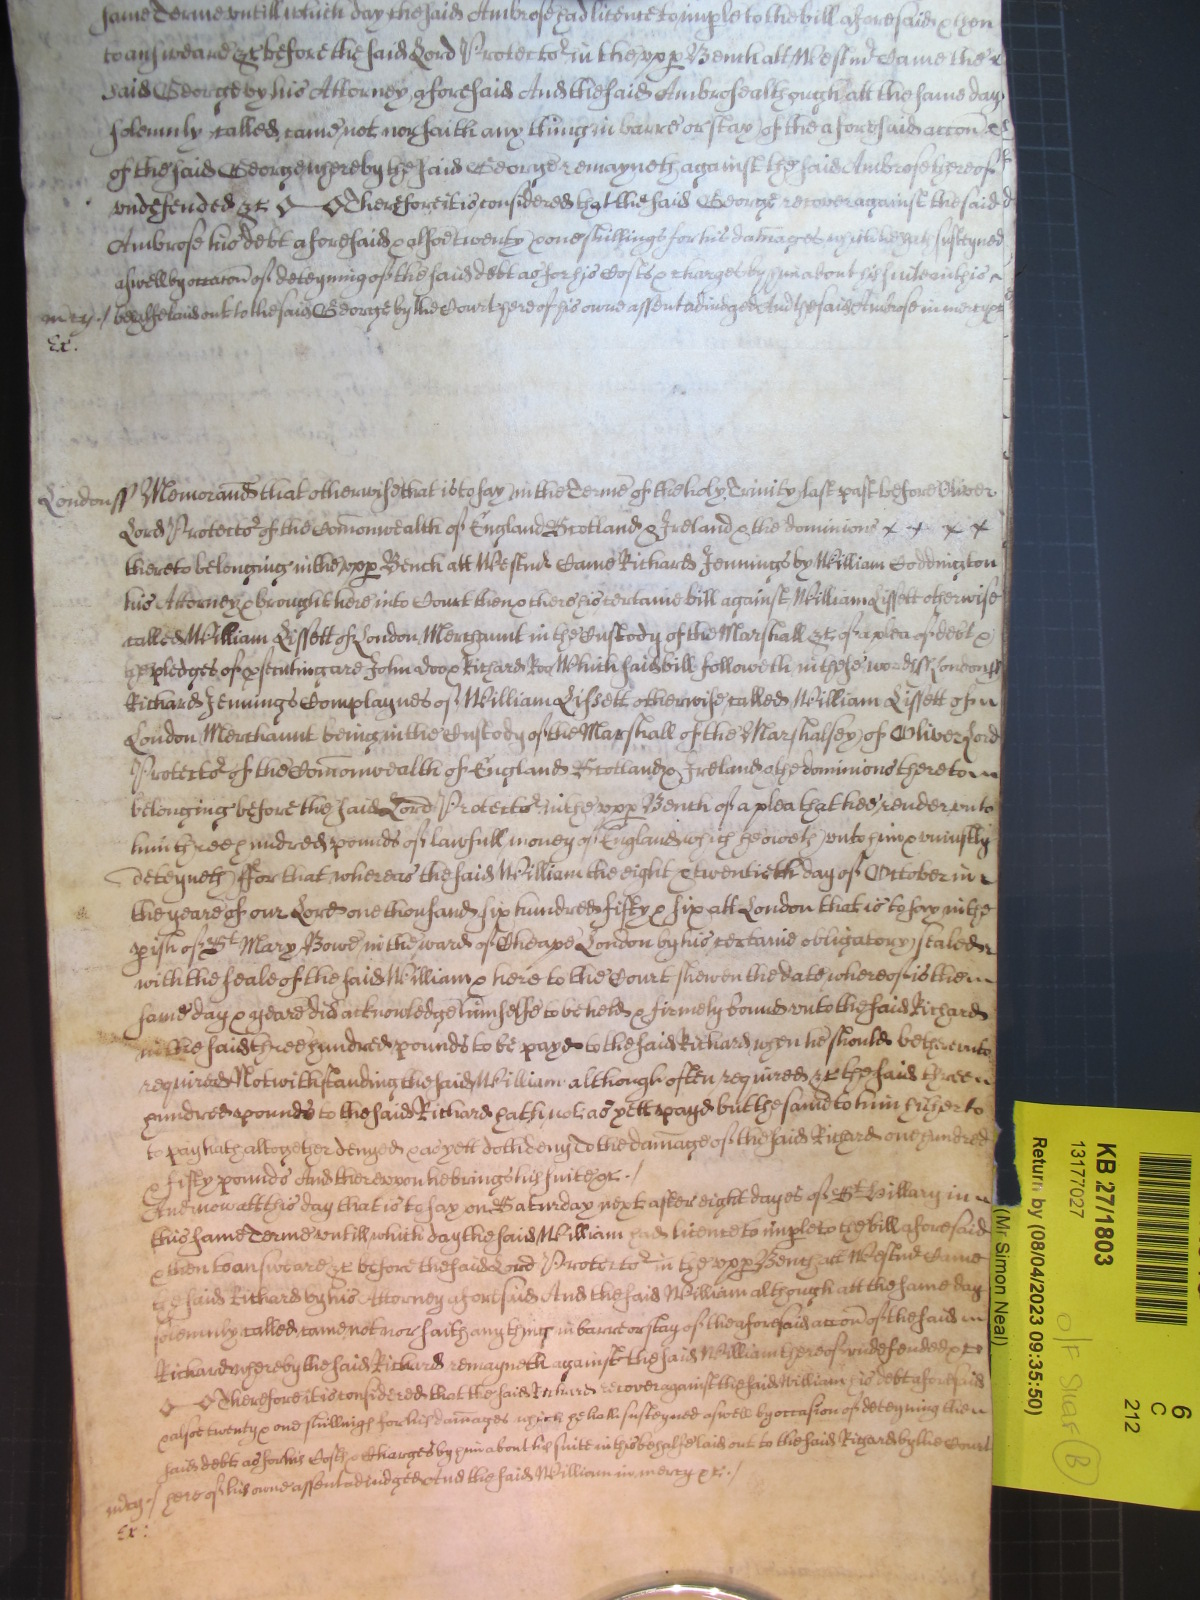 same Terme untill which day the said Ambrose had licence to imple to the bill aforesaid & then
to answeare &c before the said Lord Protector in the upp Bench att Westmr Came the
said George by his Attorney aforesaid And the said Ambrose although att the same day
solemnly called came not nor saith any thing in barre or stay of the aforesaid accon
of the said George whereby the said George remayneth against the said Ambrose thereof
undefended &c Therefore it is considered that the said George recover against the said
Ambrose his debt aforesaid & alsoe twenty & one shillings for his damages which he hath susteyned
aswell by occacon of deteyning of the said debt as for his Costs & charges by him about his suite in this
mcy / behalfe laid out to the said George by the Court here of his owne assent adiudged And the said Ambrose in mercy &c
Ex:
London ss Memorand that otherwise that is to say in the Terme of the holy Trinity last past before Oliver
Lord Protector of the Comonwealth of England Scotland & Ireland & the dominions
thereto belonging in the upp Bench att Westmr Came Richard Jennings by William Coddington
his Attorney & brought here into Court then & there his certaine bill against William Lissett otherwise
called William Lissett of London Merchaunt in the Custody of the Marshall &c of a plea of debt &
the pledges of psecuting are John doo & Richard Roo Which said bill followeth in these words ss London ss
Richard Jennings Complaynes of William Lissett otherwise called William Lissett of
London Merchaunt being in the Custody of the Marshall of the Marshalsey of Oliver Lord
Protector of the Comonwealth of England Scotland & Ireland & the dominions thereto
belonging before the said Lord Protector in the upp Bench of a plea that hee render unto
him three hundred pounds of lawfull money of England which he oweth unto him & uniustly
deteyneth ffor that whereas the said William the eight & twentieth day of October in
the yeare of our Lord one thousand six hundred fifty & six att London that is to say in the
pish of St Mary Bowe in the ward of Cheape London by his certaine obligatory sealed
with the seale of the said William & here to the Court shewen the date whereof is the
same day & yeare did acknowledge himselfe to be held & firmely bound unto the said Richard
in the said three hundred pounds to be payd to the said Richard when he should be thereunto
required Notwithstanding the said William although often required &c the said three
hundred pounds to the said Richard hath not as yett payd but the same to him hitherto
to pay hath altogether denyed & as yett doth deny To the damage of the said Richard one hundred
& fifty pounds And thereupon he brings his suite &c. /
And now att this day that is to say on Saturday next after eight dayes of St Hillary in
this same Terme untill which day the said William had licence to imple to the bill aforesaid
& then to answeare &c before the said Lord Protector in the upp Bench att Westmr Came
the said Richard by his Attorney aforesaid And the said William although att the same day
solemnly called came not nor saith any thing in barre or stay of the aforesaid accon of the said
Richard whereby the said Richard remayneth against the said William thereof undefended &c
Therefore it is considered that the said Richard recover against the said William his debt aforesaid
& alsoe twenty & one shillings for his damages which he hath susteyned aswell by occasion of deteyning the
said debt as for his Costs & Charges by him about his suite in this behalfe laid out to the said Richard by the Court
mcy / here of his owne assent adiudged And the said William in mercy &c. /
Ex:
KB 27/1803
13177027
Return by (08/04/2023 09:35:50)
(Mr Simon Neal)
6
C
212
B